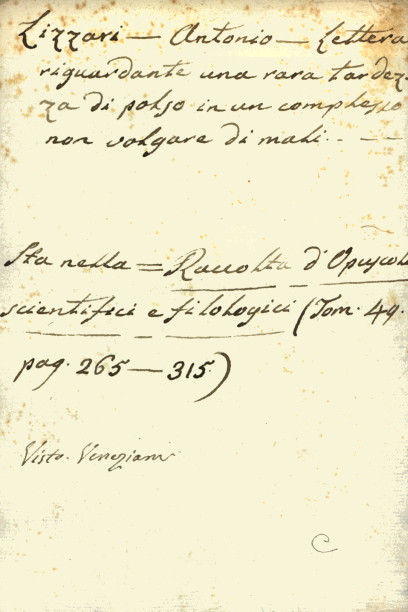 Lizzari — Antonio — Lettera
riguardante una rara tardez-
za di polso in un complesso
non volgare di mali. - —
Sta nella = Raccolta d'Opuscoli
scientifici e filologici (Tom. 49.
pag. 265 — 315)
Visto. Veneziani
C